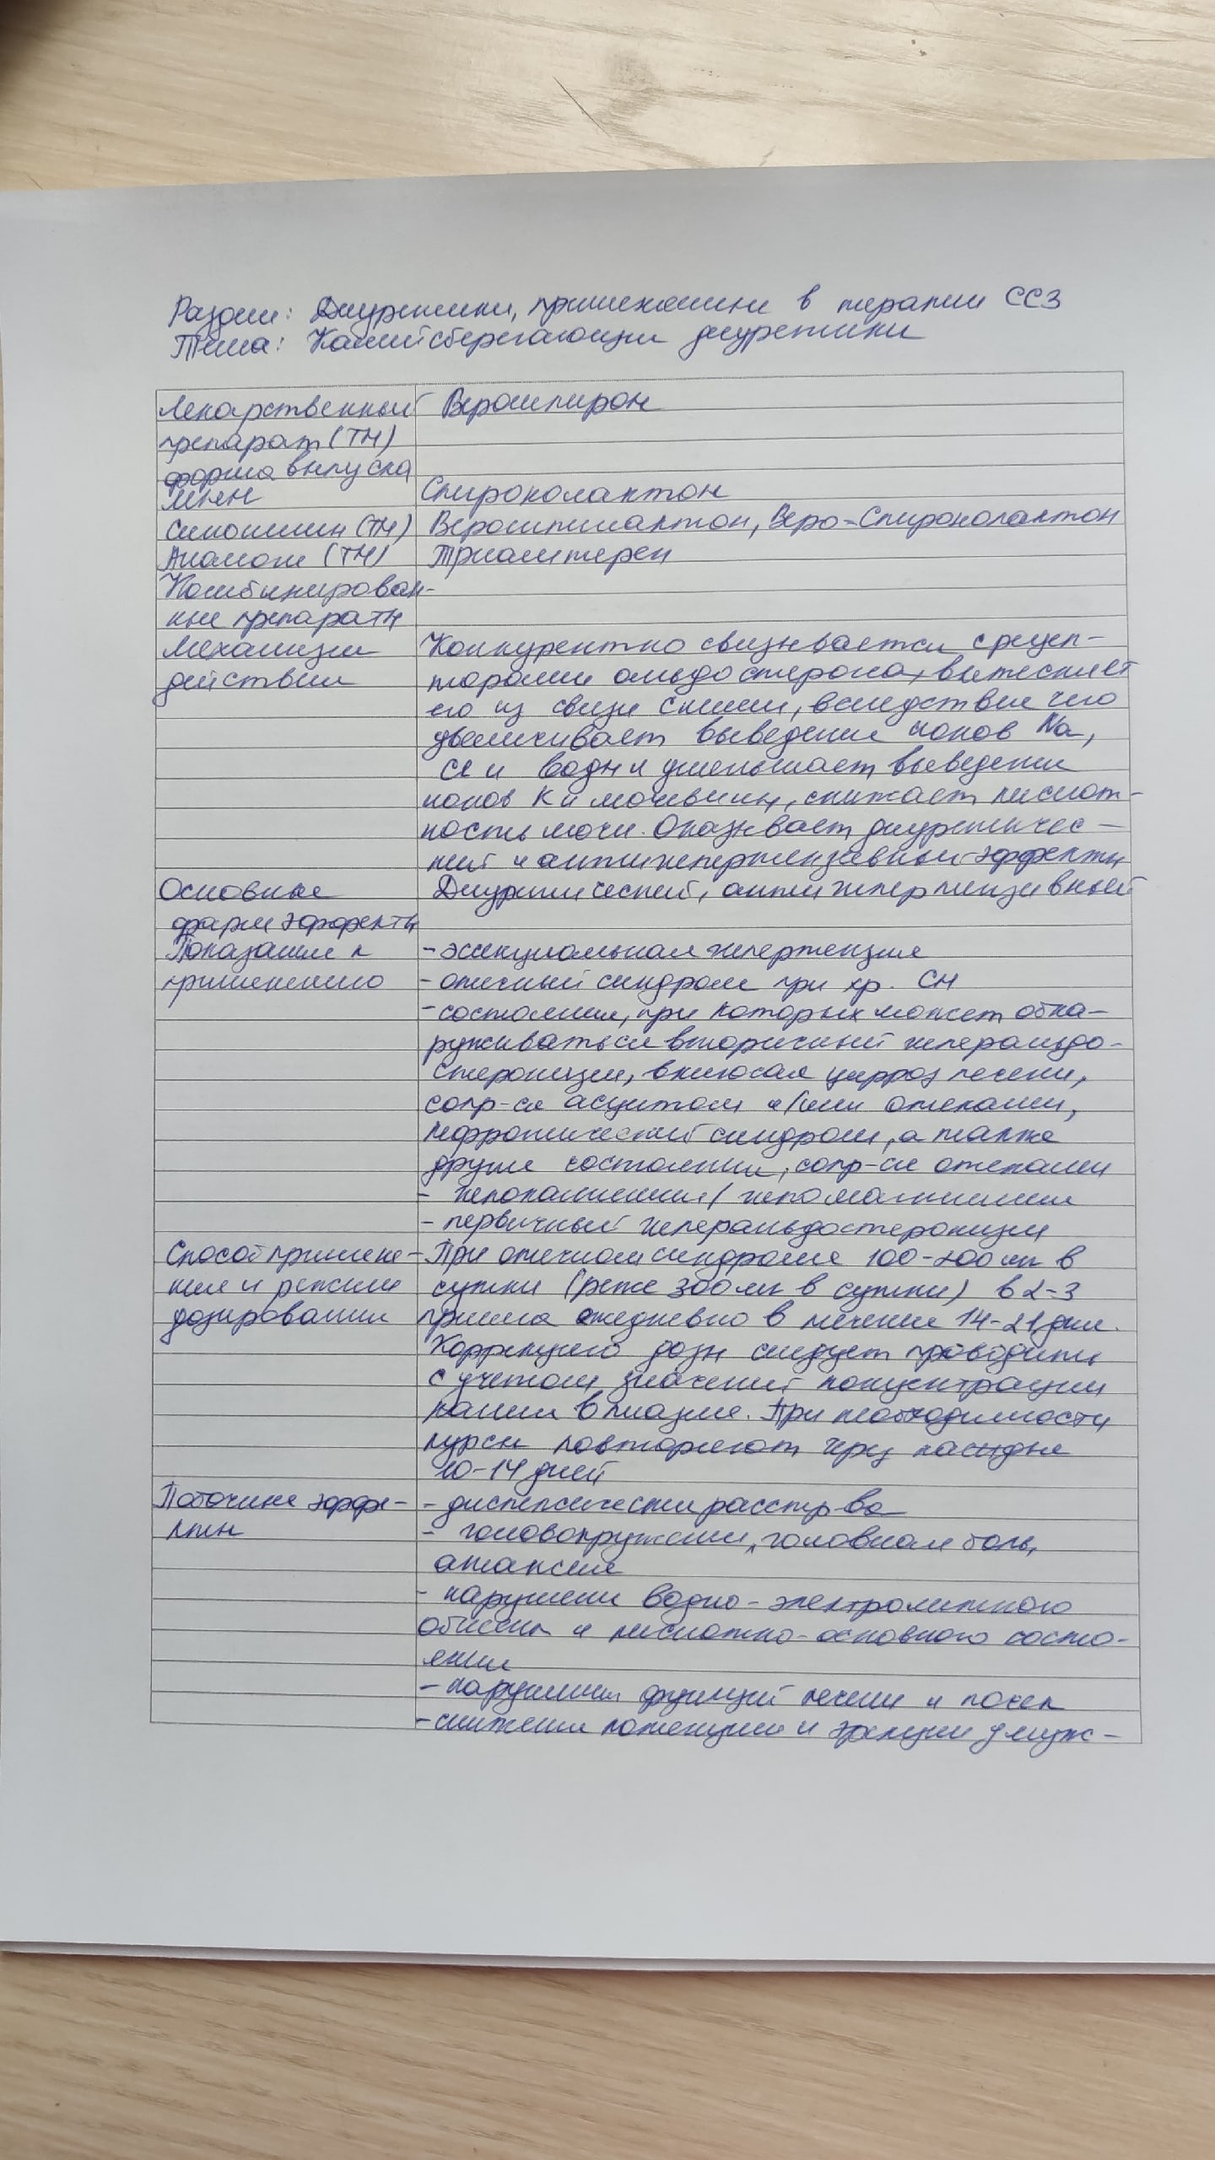 Раздел: Диуретики, применяемые в терапии ССЗ
Тема: Калийсберегающие диуретики
Лекарственный Верошпирон
препарат (ТН)
форма выпуска
МНН Спиронолактон
Синонимы (ТН) Верошпилактон, Веро-Спиронолактон
Аналоги (ТН) Триамтерен
Комбинирован-
ные препараты
Механизм Конкурентно связывается с рецеп-
действия торами альдостерона, вытесняет
его из связи с ними, вследствие чего
увеличивает выведение ионов Na,
Cl и воды и уменьшает выведение
ионов K и мочевины, снижает кислот-
ность мочи. Оказывает диуретичес-
кий и антигипертензивный эффекты
Основные Диуретический, антигипертензивный
фарм эффекты
Показания к - эссенциальная гипертензия
применению - отечный синдром при хр. СН
- состояния, при которых может обна-
руживаться вторичный гиперальдо-
стеронизм, включая цирроз печени,
сопр-ся асцитом и/или отеками,
нефротический синдром, а также
другие состояния, сопр-ся отеками
- гипокалиемия/гипомагниемия
- первичный гиперальдостеронизм
Способ примене- При отечном синдроме 100-200 мг в
ния и режим сутки (реже 300 мг в сутки) в 2-3
дозирования приема ежедневно в течение 14-21 дня.
Коррекцию дозы следует проводить
с учетом значений концентрации
калия в плазме. При необходимости
курсы повторяют через каждые
10-14 дней
Побочные эффе- - диспепсические расстр-ва
кты - головокружение, головная боль,
атаксия
- нарушения водно-электролитного
обмена и кислотно-основного состо-
яния
- нарушения функций печени и почек
- снижение потенции и эрекции у муж-